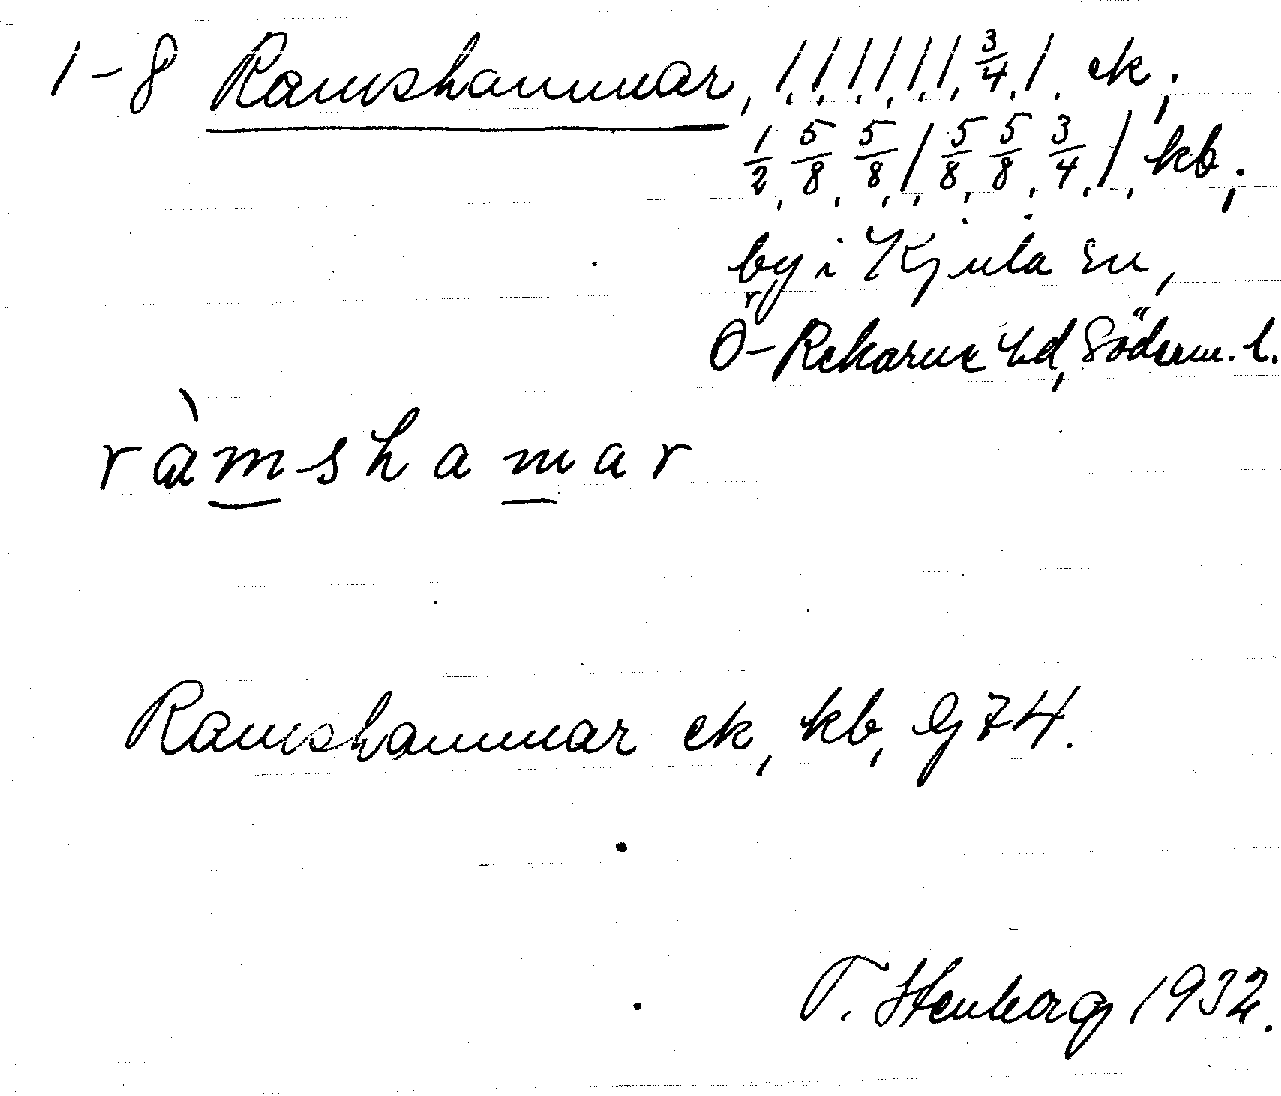 1-8 Ramshammar, 1, 1, 1, 1, 1, 1, 3/4, 1 ek;
1/2, 5/8, 5/8, 1, 5/8, 5/8, 3/4, 1, kb;
by i Kjula sn,
Ö-Rekarne hd, Söderm. l.
ràmshamar
Ramshammar ek, kb, Gj 74.
T. Stenborg 1932.